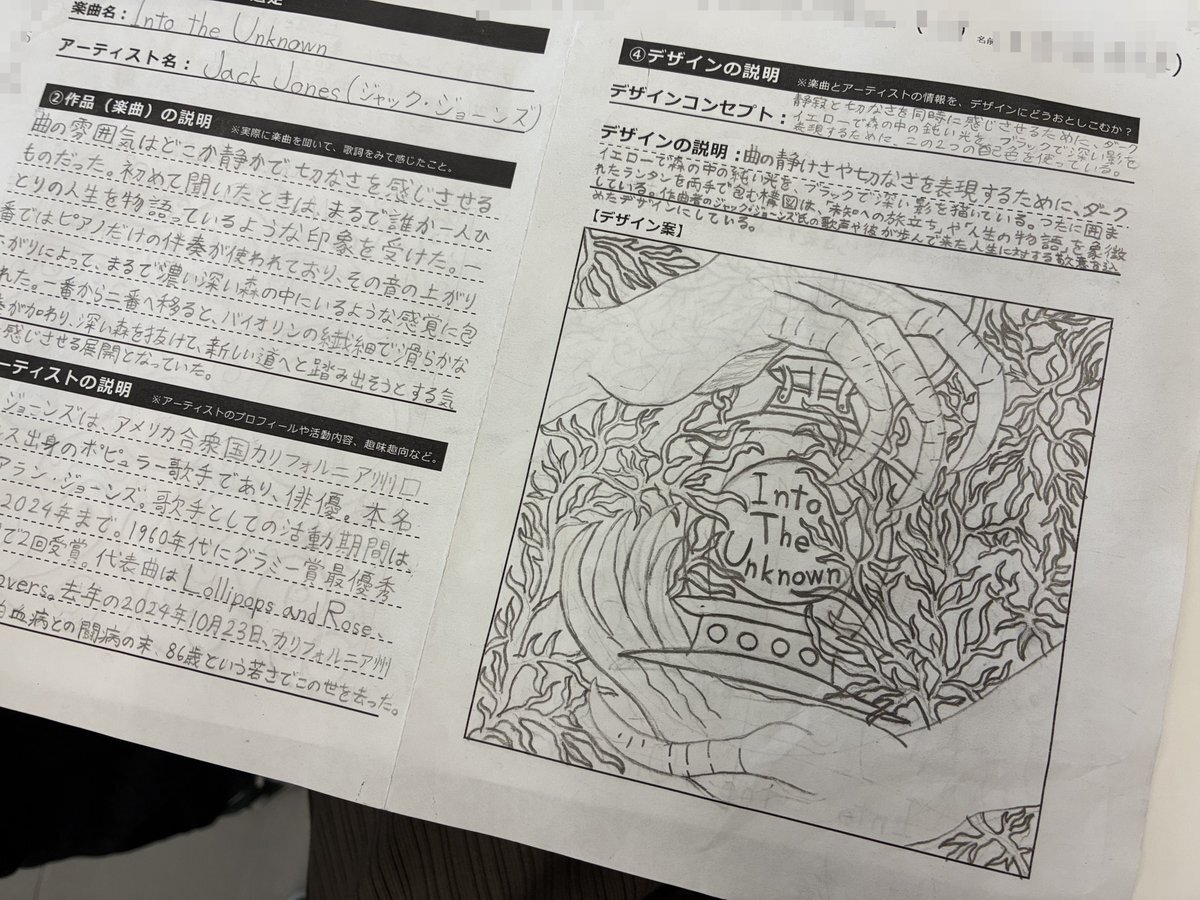 楽曲名：Into the Unknown
アーティスト名：Jack Jones(ジャック・ジョーンズ)
②作品（楽曲）の説明 ※実際に楽曲を聞いて、歌詞をみて感じたこと。
曲の雰囲気はどこか静かで、切なさを感じさせる
ものだった。初めて聞いたときは、まるで誰か一人ひ
とりの人生を物語っているような印象を受けた。一
番ではピアノだけの伴奏が使われており、その音の上がり
がりによって、まるで濃い深い森の中にいるような感覚に包
れた。一番から二番へ移ると、バイオリンの繊細で滑らかな
奏が加わり、深い森を抜けて、新しい道へと踏み出そうとする気
感じさせる展開となっていた。
ーティストの説明 ※アーティストのプロフィールや活動内容、趣味趣向など。
ジョーンズは、アメリカ合衆国カリフォルニア州ロ
ス出身のポピュラー歌手であり、俳優。本名
アラン・ジョーンズ。歌手としての活動期間は、
2024年まで。1960年代にグラミー賞最優秀
で2回受賞。代表曲はLollipops and Rose、
overs。去年の2024年10月23日、カリフォルニア州
白血病との闘病の末、86歳という若さでこの世を去った。
名前
④デザインの説明 ※楽曲とアーティストの情報を、デザインにどうおとしこむか？
デザインコンセプト：静寂と切なさを同時に感じさせるために、ダーク
イエローで森の中の鈍い光を、ブラックで深い影を
表現するために、この2つの色を使っている。
デザインの説明：曲の静けさや切なさを表現するために、ダーク
イエローで森の中の鈍い光を、ブラックで深い影を描いている。つたに囲ま
れたランタンを両手で包む構図は、「未知への旅立ち」や「人生の物語」を象徴
している。作曲者のジャック・ジョーンズ氏の歌声や彼が歩んで来た人生に対する敬意を込
めたデザインにしている。
【デザイン案】
Into
The
Unknown